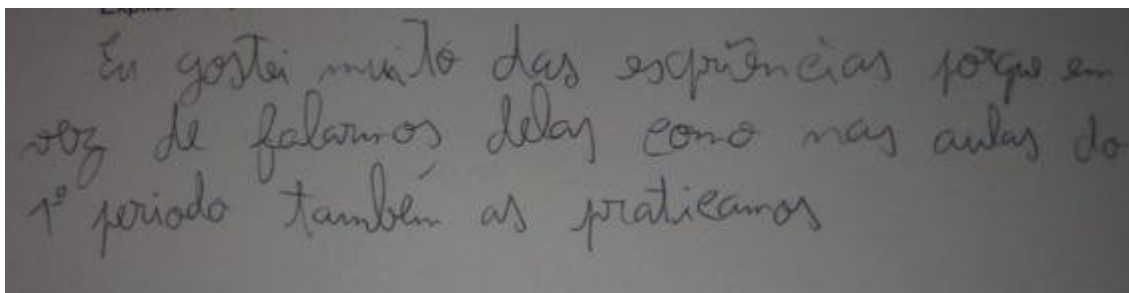 Eu gostei muito das espriências porque em
vez de falarmos delas como nas aulas do
1º periodo também as praticamos